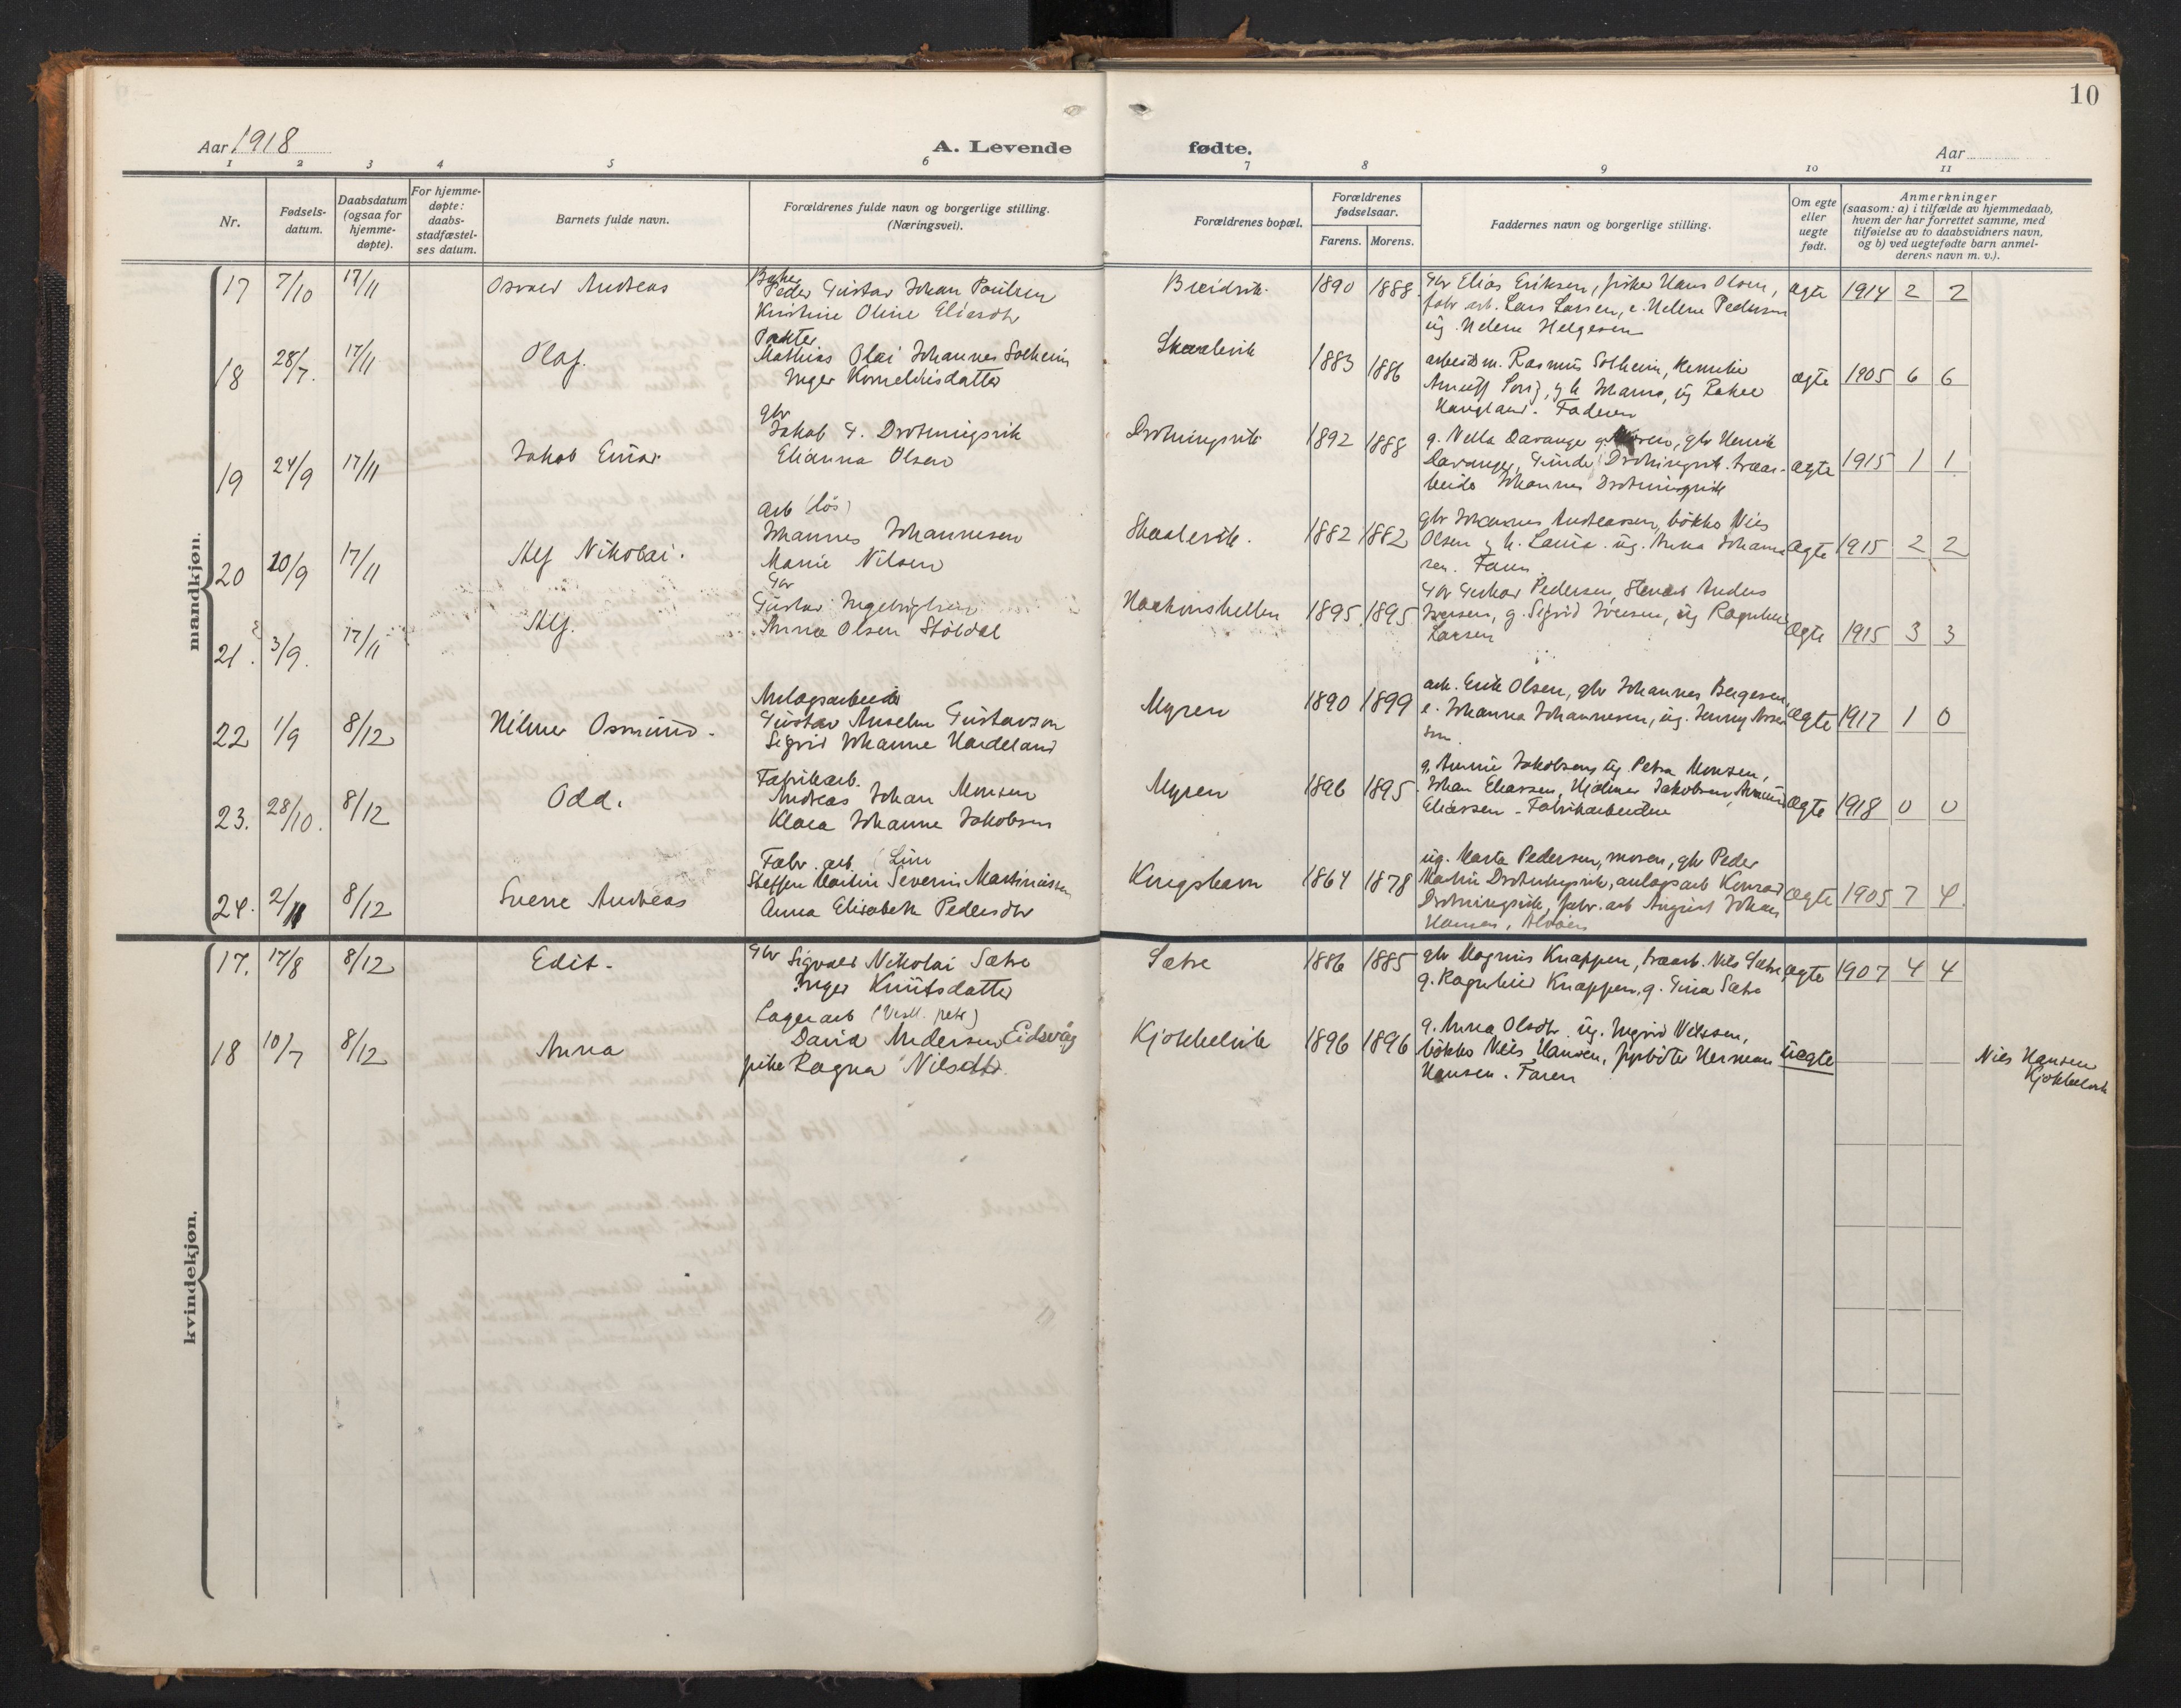 10
Aar 1918
A. Levende fødte.
Aar
1 2 3 4 5 6 7 8 9 10 11
Nr.
Fødsels-
datum.
Daabsdatum
(ogsaa for
hjemme-
døpte).
For hjemme-
døpte:
daabs-
stadfæstel-
ses datum.
Barnets fulde navn.
Forældrenes fulde navn og borgerlige stilling.
(Næringsvei).
Forældrenes bopæl.
Forældrenes
fødselsaar.
Farens. Morens.
Faddernes navn og borgerlige stilling.
Om egte
eller
uegte
født.
Anmerkninger
(saasom: a) i tilfælde av hjemmedaab,
hvem der har forrettet samme, med
tilføielse av to daabsvidners navn,
og b) ved uegtefødte barn anmel-
derens navn m. v.).
mandkjøn.
17 7/10 17/11 Osvald Andreas
Baker
Peder Gustav Johan Poulsen
Kristine Oline Eliasdtr
Breidvik. 1890 1888
Gbr Elias Eriksen, fisker Hans Olsen,
fabr arb. Lars Larsen, e. Helene Pedersen
ug. Helene Helgesen
ægte 1914 2 2
18 28/7. 17/11 Olaf.
Mathias Olai Johannes Solheim
Inger Korneliusdatter
Skaalevik 1883 1886
arbeidsm. Rasmus Solheim,
g h Johanna, ug Rakel
Haugland. Faderen
ægte 1905 6 6
19 24/9 17/11 Jakob Einar
gbr
Jakob G. Drotningsvik
Elianna Olsen
Drotningsvik 1892 1888
g. Nella Davanger g. Moren, gbr Henrik
Davanger, Gunder Drotningsvik. træar-
beider Johannes Drotningsvik
ægte 1915 1 1
20 20/9 17/11 Alf Nikolai.
arb (løs)
Johannes Johannesen
Marie Nilsen
Skaalevik. 1882 1882
gbr Johannes Andreassen, bökker Nils
Olsen g h. Laura. ug. Anna Johanne
sen. Faren
ægte 1915 2 2
21. 3/9. 17/11 Alf.
Gbr
Gustav Ingebrigtsen
Anna Olsen Stöldal
Haakonshellen 1895 1895
Gbr Gustav Pedersen, Anders
Iversen, g. Sigrid Iversen, ug Ragnhild
Larsen
ægte 1915 3 3
22 1/9 8/12 Hilmer Osmund.
Anlægsarbeider
Gustav Anselm Gustavson
Sigrid Johanne Hardeland
Myren 1890 1899
arb. Erik Olsen, gbr Johannes Bergesen,
e. Johanna Johannesen, ug. Jenny
ægte 1917 1 0
23. 28/10. 8/12 Odd.
Fabrikarb.
Andreas Johan Monsen
Klara Johanne Jakobsen
Myren 1896 1895
g. Annie Jakobsen, ug. Petra Monsen,
Johan Eliassen, Hjalmar Jakobsen,
Eliassen - Fabrikarbeidere
ægte 1918 0 0
24. 2/11 8/12 Sverre Andreas
Fabr. arb
Steffen Martin Severin Martiniussen
Anna Elisabeth Pedersdtr
Kingshavn 1864 1878
ug. Marta Pedersen, moren, gbr Peder
Martin Drotningsvik, anlægsarb Konrad
Drotningsvik, fabr. arb August Johan
Hansen, Alvöen
ægte 1905 7 4
kvindekjøn.
17. 17/8 8/12 Edit.
Gbr Sigvald Nikolai Sætre
Inger Knutsdatter
Sætre 1886 1885
gbr Magnus Knappen, træarb. Nils Sætre
g. Ragnhild Knappen, g. Gina Sætre
ægte 1907 4 4
18 10/7 8/12 Anna
Lagerarb
David Andersen Eidsvåg
pike Ragna Nilsdtr.
Kjökkelvik 1896 1896
g. Anna Olsdtr. ug. Ingrid Nilssen,
bökker Nils Hansen, fyrböter Herman
Hansen. Faren
uægte
Nils Hansen
Kjökkelvik